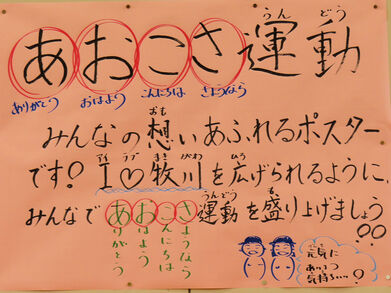 あおこさ運動
うんどう
ありがとう おはよう こんにちは さようなら
みんなの想いあふれるポスター
おも
です!I♡牧川を広げられるように、
アイ ラブ まき がわ ひろ
みんなであおこさ運動を盛り上げましょう!!
うんどう も あ
ありがとう
おはよう
こんにちは
さようなら
元気に
あいさつ
気持ち…?